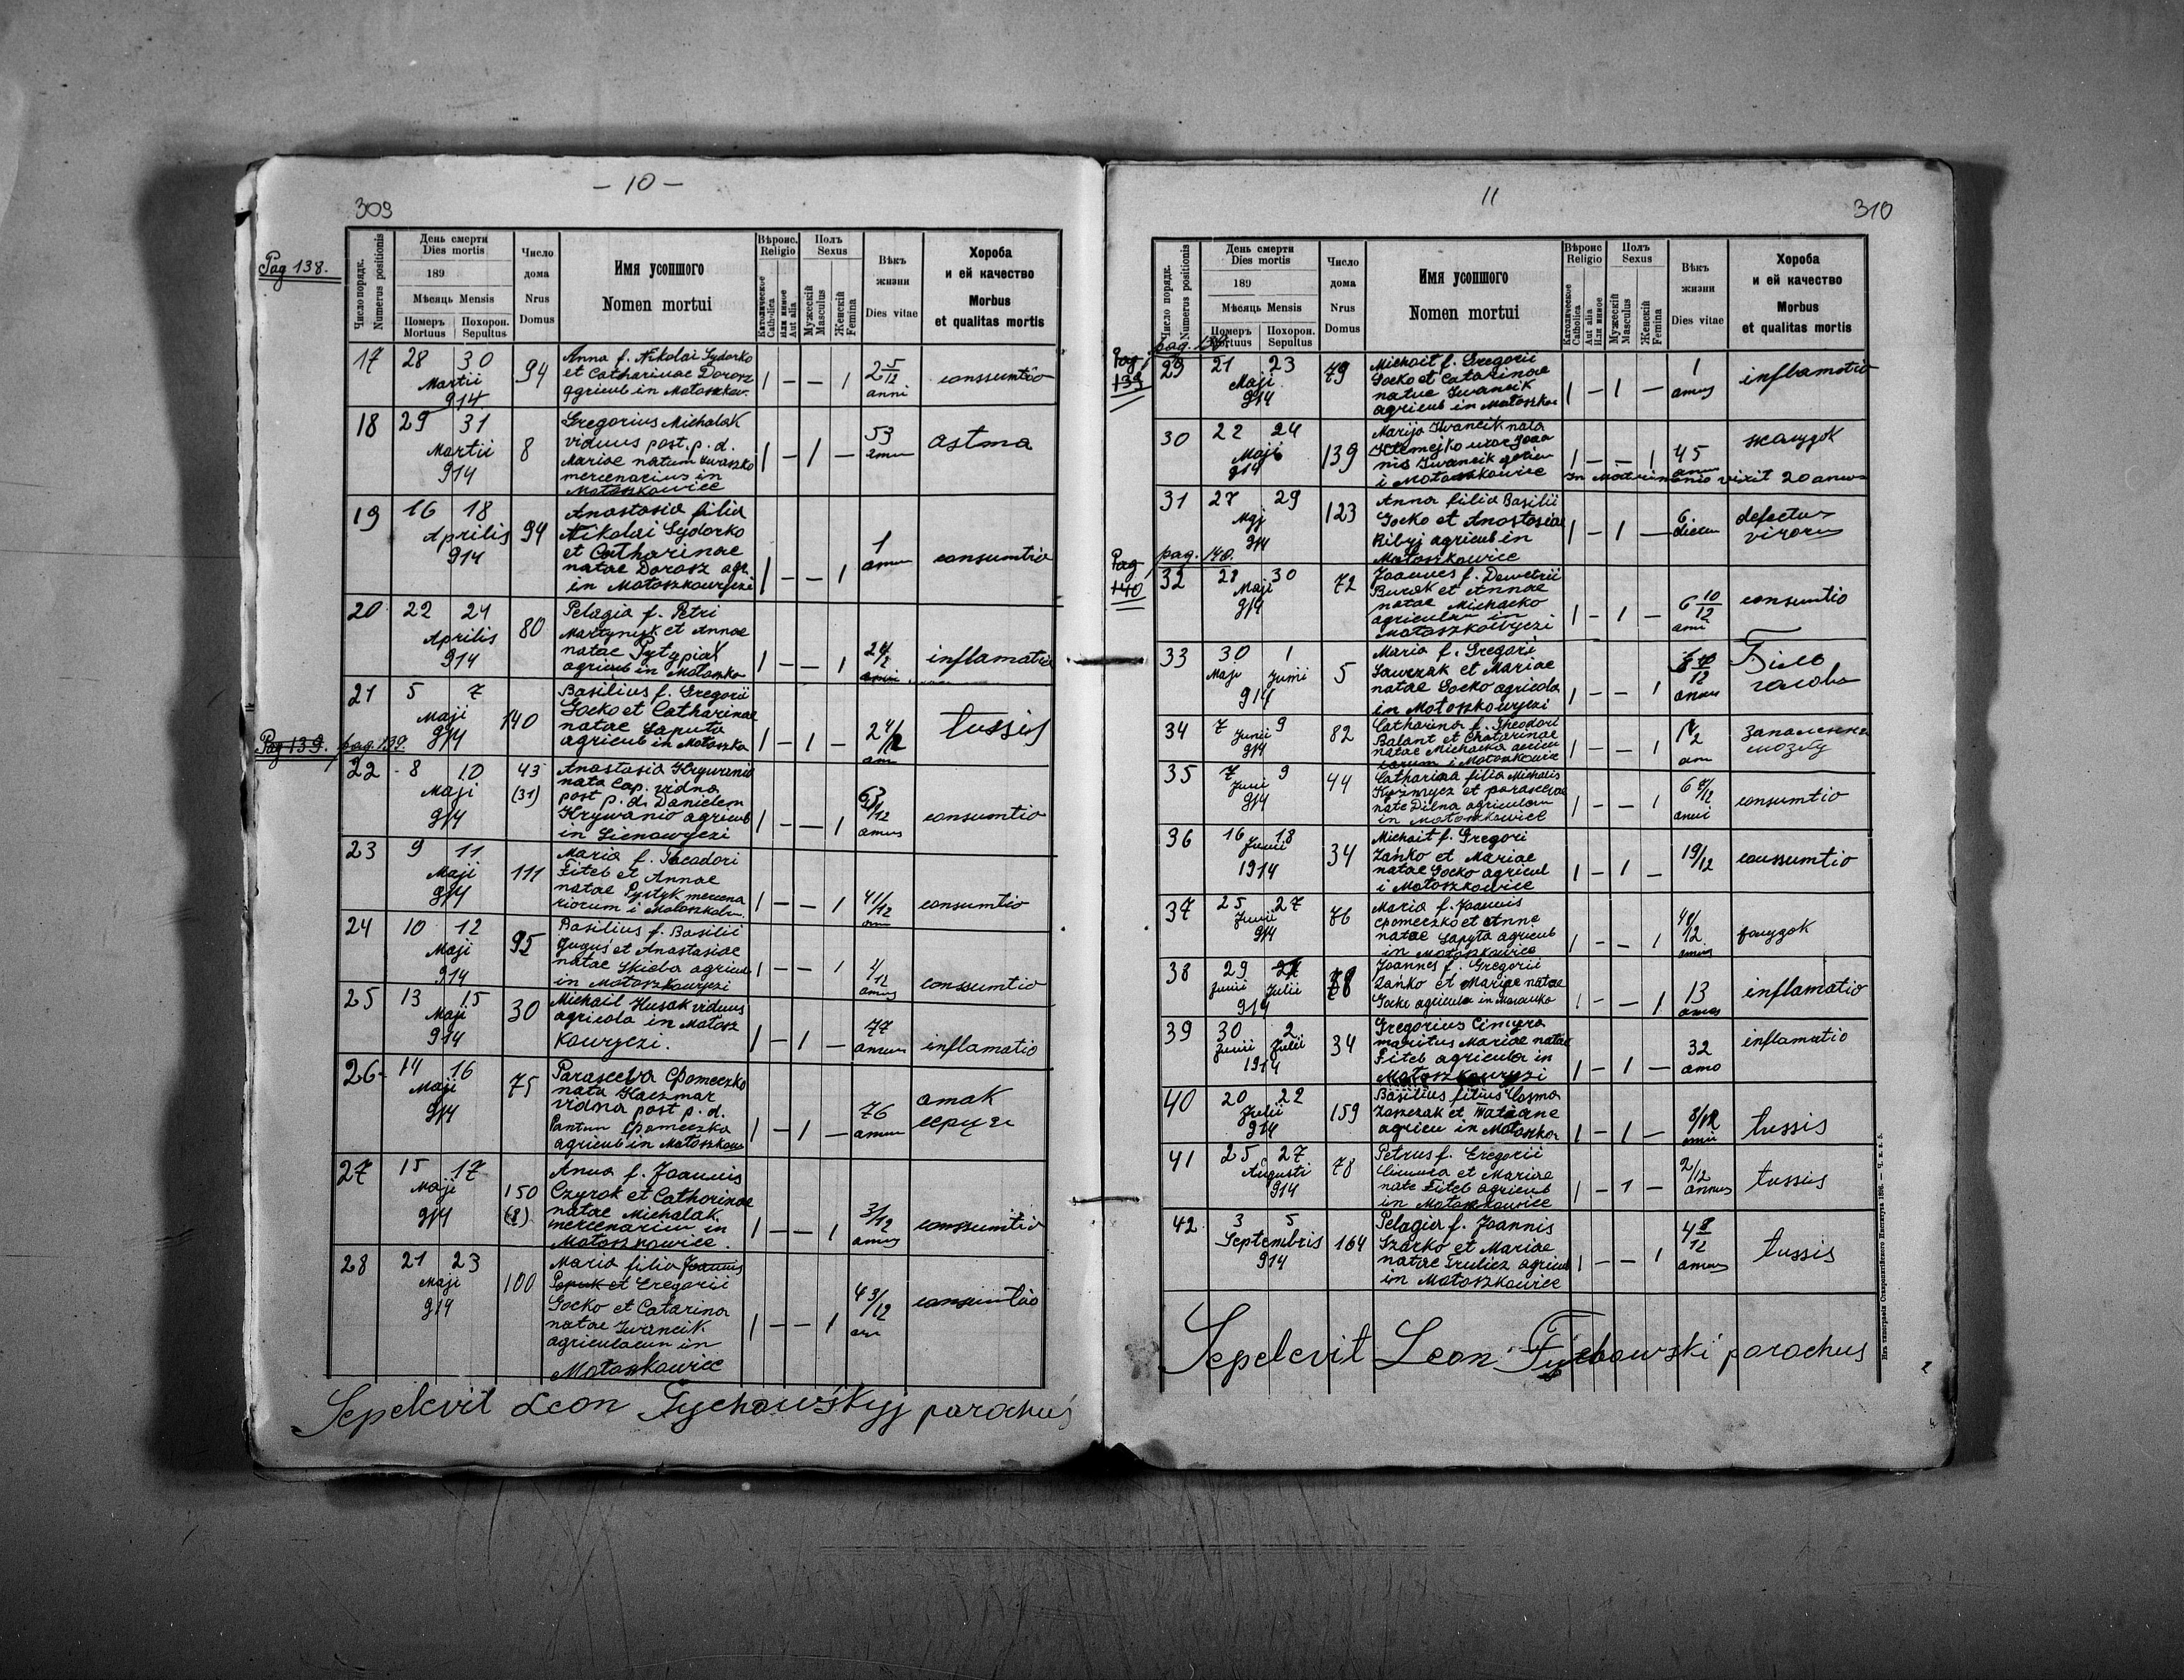 - 10 -
309
Pag 138.
Число порядк.
Numerus positionis
День смерти
Dies mortis
189
Мѣсяць Mensis
Померъ
Mortuus
Похорон.
Sepultus
Число
дома
Nrus
Domus
Имя усопшого
Nomen mortui
Вѣроис.
Religio
Католическое
Catholica
Или инное
Aut alia
Полъ
Sexus
Мужескій
Masculus
Женскій
Femina
Вѣкъ
жизни
Dies vitae
Хороба
и ей качество
Morbus
et qualitas mortis
17 28 30 Martii 914 94
Anna f. Nikolai Sydorko
et Catharinae Dorosz
agricub in Matoszkow.
1 — — 1 2 5/12 anni conssumtio
18 29 31 Martii 914 8
Gregorius Michalak
viduus post. p. d.
Mariae natum Iwaszko
mercenarius in
Matoszkowice
1 — 1 — 53 astma
19 16 18 Aprilis 914 94
Anastasia filia
Nikolai Sydorko
et Catharinae
natae Dorosz agr.
in Matoszkowyczi
1 — — 1 1 consumtio
20 22 24 Aprilis 914 80
Pelagia f. Petri
Martynyk et Annae
natae
agricub in Matoszko
1 — — 1 inflamatio
21 5 7 Maji 914 140
Basilius f. Gregorii
Gocko et Catharinae
natae Saputa
agricub in Matoszko
1 — 1 — tussis
Pag 139. pag. 139.
22 8 10 Maji 914 43 (31)
Anastasia Hrywanio
nata Cap. vidna
post p. d. Danielem
Hrywanio agricub
in Sienowyczi
1 — — 1 consumtio
23 9 11 Maji 914 111
Maria f. Theodori
Fiteb et Annae
natae Pystyk mercena
riorum i Matoszkow.
1 — — 1 4/12 consumtio
24 10 12 Maji 914 95
Basilius f. Basilii
et Anastasiae
natae Skieba agricub
in Matoszkowyczi
1 — — 1 4/12 annus conssumtio
25 13 15 Maji 914 30
Michail Husak viduus
agricola in Matosz
kowyczi.
1 — 1 — 77 inflamatio
26 14 16 Maji 914 75
Parasceva Cpomeczko
nata Kaczmar
vidna post p. d.
Pantun Cpomeczko
agricub in Matoszkow
1 — 1 — 76
27 15 17 Maji 914 150 (8)
Anna f. Joannis
Czyrok et Catharinae
natae Michalak
mercenarium in
Matoszkowice.
1 — — 1 3/12 annus conssumtio
28 21 23 Maji 914 100
Maria filia Joannis
Popuk et Gregorii
Gocko et Catarina
natae Iwancik
agricolarum in
Matoszkowice
1 — — 1 4 3/12 consumtio
Sepelevit Leon Tychowśkyj parochus
11
310
Число порядк.
Numerus positionis
День смерти
Dies mortis
189
Мѣсяць Mensis
Померъ
Mortuus
Похорон.
Sepultus
Число
дома
Nrus
Domus
Имя усопшого
Nomen mortui
Вѣроис
Religio
Католическое
Catholica
Aut alia
Или инное
Полъ
Sexus
Мужескій
Masculus
Женскій
Femina
Вѣкъ
жизни
Dies vitae
Хороба
и ей качество
Morbus
et qualitas mortis
Pag 139
29 21 23 Maji 914 79
Michail f. Gregorii
Gocko et Catarinae
natae Iwancik
agricub in Matoszko
1 — 1 — 1 annus inflamatio
30 22 24 Maji 914 139
Marija Iwancik nata
Klemejko uxor Joan
nis Iwancik
i Matoszkowice
1 — — 1 45 жаlудок
In Matrimonio vixit 20 annos
31 27 29 Maj 914 123
Anna filia Basilii
Gocko et Anastasiae
Ribyj agricub in
Matoszkowice
1 — 1 — 6. dierum defectus
virorum
Pag 140 pag. 140.
32 28 30 Maji 914 72
Joannes f. Demetrii
Burak et Annae
natae Michaeko
agricolarum in
Matoszkowyczi
1 — 1 — 6 10/12 anni consumtio
33 30 1 Maji Junii 914 5
Maria f. Gregori
Sawczak et Mariae
natae Gocko agricola
in Matoszkowyczi
1 — — 1 Біло
голова
34 7 9 Junii 914 82
Catharina f. Theodori
Balant et Chatarinae
natae Michaeko
i Matoszkowice
1 — — 1 запалення
мозгу
35 7 9 Junii 914 44
Catharina filia Michalis
Kuźmycz et parascevae
nate Dilna agricolarum
in Matoszkowice
1 — — 1 consumtio
36 16 18 Junii 1914 34
Michait f. Gregori
Zańko et Mariae
natae Gocko agricul
i Matoszkowice
1 — 1 — 19/12 conssumtio
37 25 27 Junii 914 76
Maria f. Joannis
Cpomeczko et Anne
natae Sapyta agricub
in Matoszkowice
1 — — 1
38 29 Junii Julii 914 78
Joannes f. Gregorii
Zańko et Mariae natae
Gocko agricula in
1 — — 1 13 inflamatio
39 30 2 Junii Julii 1914 34
Gregorius Cimyra
maritus Mariae natae
Fiteb agricula in
Matoszkowyczi
1 — 1 — 32 anno inflamatio
40 20 22 Julii 914 159
Basilius filius Cosma
et Tatiane
agricu in Matoszkow
1 — 1 — 8/12 tussis
41 25 27 Augusti 914 78
Petrus f. Gregorii
Cimyra et Mariae
nate Fiteb agricub
in Matoszkowice
1 — 1 — 2/12 annus tussis
42 3 5 Septembris 914 164
Pelagia f. Joannis
Szarko et Mariae
natae Trulicz agricub
in Matoszkowice
1 — — 1 4 8/12 annus tussis
Sepelevit Leon Tychowski parochus
Изъ типографіи Ставропигійского Института 1896.